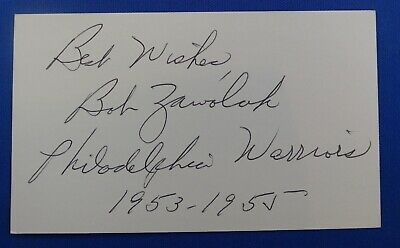 Best Wishes,
Bob Zawoluk
Philadelphia Warriors
1953-1955